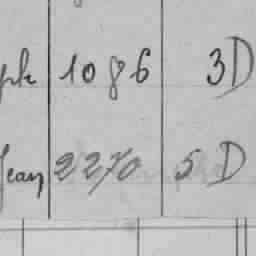 1086 3D
Jean 2270 5 D